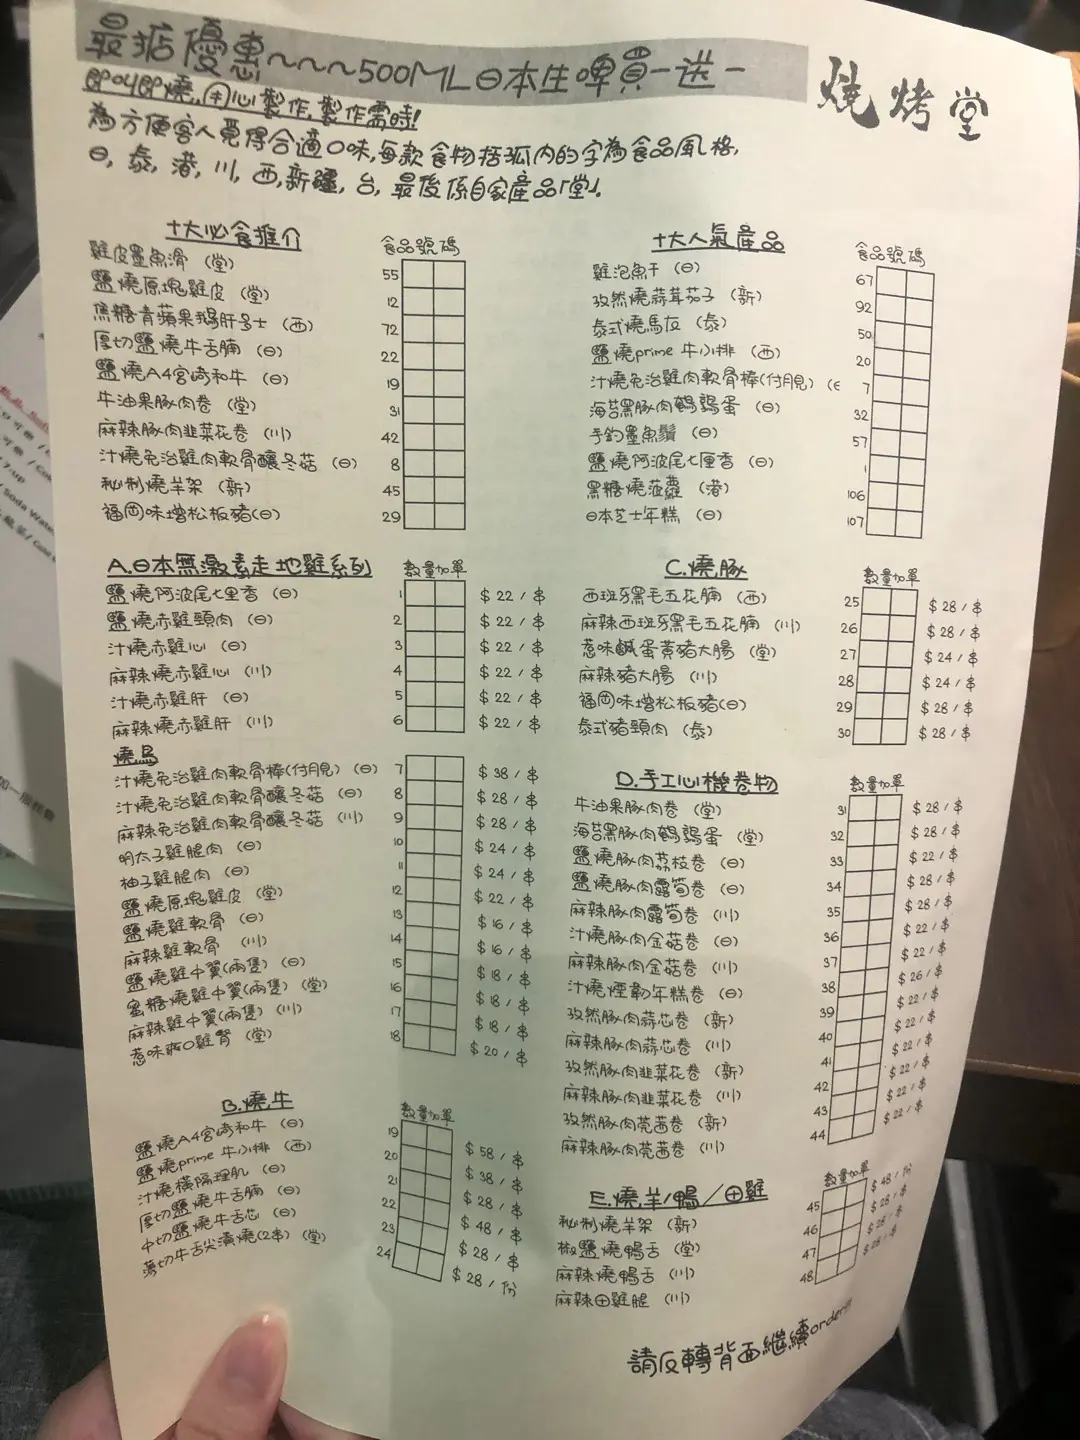 最掂優惠~~~500ML日本生啤買一送一
燒烤堂
即叫即燒,用心製作,製作需時!
為方便客人覓得合適口味,每款食物括弧內的字為食品風格,
日, 泰, 港, 川, 西, 新疆, 台, 最後係自家產品「堂」.
十大必食推介 食品號碼
雞皮墨魚滑 (堂) 55
鹽燒原塊雞皮 (堂) 12
焦糖青蘋果鵝肝多士 (西) 72
厚切鹽燒牛舌腩 (日) 22
鹽燒A4宮崎和牛 (日) 19
牛油果豚肉卷 (堂) 31
麻辣豚肉韮菜花卷 (川) 42
汁燒免治雞肉軟骨釀冬菇 (日) 8
秘制燒羊架 (新) 45
福岡味增松板豬(日) 29
十大人氣產品 食品號碼
雞泡魚干 (日) 67
孜然燒蒜茸茄子 (新) 92
泰式燒馬友 (泰) 50
鹽燒prime 牛小排 (西) 20
汁燒免治雞肉軟骨棒(付月見) 7
海苔黑豚肉鵪鶉蛋 (日) 32
手釣墨魚鬚 (日) 57
鹽燒阿波尾七里香 (日) 1
黑糖燒菠蘿 (港) 106
日本芝士年糕 (日) 107
A.日本無激素走地雞系列 數量加單
鹽燒阿波尾七里香 (日) 1 $22/串
鹽燒赤雞頸肉 (日) 2 $22/串
汁燒赤雞心 (日) 3 $22/串
麻辣燒赤雞心 (川) 4 $22/串
汁燒赤雞肝 (日) 5 $22/串
麻辣燒赤雞肝 (川) 6 $22/串
燒鳥
汁燒免治雞肉軟骨棒(付月見) (日) 7 $38/串
汁燒免治雞肉軟骨釀冬菇 (日) 8 $28/串
麻辣免治雞肉軟骨釀冬菇 (川) 9 $28/串
明太子雞腿肉 (日) 10 $24/串
柚子雞腿肉 (日) 11 $24/串
鹽燒原塊雞皮 (堂) 12 $22/串
鹽燒雞軟骨 (日) 13 $16/串
麻辣雞軟骨 (川) 14 $16/串
鹽燒雞中翼(兩隻) (日) 15 $18/串
蜜糖燒雞中翼(兩隻) (堂) 16 $18/串
麻辣雞中翼(兩隻) (川) 17 $18/串
惹味爽口雞腎 (堂) 18 $20/串
B.燒牛 數量加單
鹽燒A4宮崎和牛 (日) 19 $58/串
鹽燒prime 牛小排 (西) 20 $38/串
汁燒橫隔理肌 (日) 21 $28/串
厚切鹽燒牛舌腩 (日) 22 $48/串
中切鹽燒牛舌芯 (日) 23 $28/串
薄切牛舌尖漬燒(2串) (堂) 24 $28/份
C.燒豚 數量加單
西班牙黑毛五花腩 (西) 25 $28/串
麻辣西班牙黑毛五花腩 (川) 26 $28/串
惹味鹹蛋黃豬大腸 (堂) 27 $24/串
麻辣豬大腸 (川) 28 $24/串
福岡味增松板豬(日) 29 $28/串
泰式豬頸肉 (泰) 30 $28/串
D.手工心機卷物 數量加單
牛油果豚肉卷 (堂) 31 $28/串
海苔黑豚肉鵪鶉蛋 (堂) 32 $28/串
鹽燒豚肉荔枝卷 (日) 33 $22/串
鹽燒豚肉露筍卷 (日) 34 $28/串
麻辣豚肉露筍卷 (川) 35 $28/串
汁燒豚肉金菇卷 (日) 36 $22/串
麻辣豚肉金菇卷 (川) 37 $22/串
汁燒煙韌年糕卷 (日) 38 $26/串
孜然豚肉蒜芯卷 (新) 39 $22/串
麻辣豚肉蒜芯卷 (川) 40 $22/串
孜然豚肉韮菜花卷 (新) 41 $22/串
麻辣豚肉韮菜花卷 (川) 42 $22/串
孜然豚肉芫茜卷 (新) 43 $22/串
麻辣豚肉芫茜卷 (川) 44 $22/串
E.燒羊/鴨/田雞 數量加單
秘制燒羊架 (新) 45 $48/份
椒鹽燒鴨舌 (堂) 46 $28/串
麻辣燒鴨舌 (川) 47 $28/串
麻辣田雞腿 (川) 48 $28/串
請反轉背面繼續order!!!